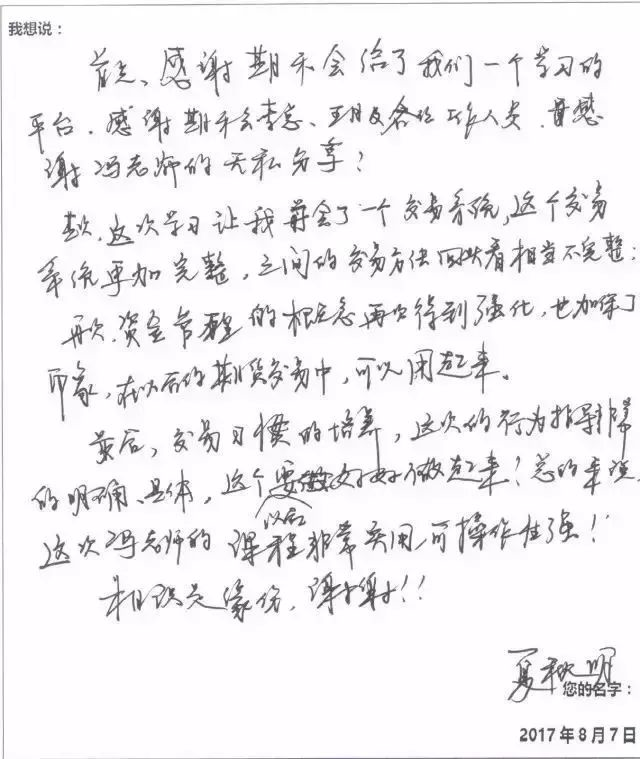 我想说：
首先、感谢期禾会给了我们一个学习的
平台．感谢期禾会李总、及各位工作人员．感
谢冯老师的无私分享！
其次，这次学习让我学会了一个交易系统，这个交易
系统更加完整，之间的交易方法回头看相当不完整；
再次，资金管理的概念再次得到强化，也加深了
印象，在以后的期货交易中，可以用起来。
最后，交易习惯的培养，这次的行为指导非常
的明确、具体，这个要好好做起来！总的来说，
以后
这次冯老师的课程非常实用，可操作性强！
相识是缘份，谢谢！！
夏秋明
您的名字：
2017年8月7日